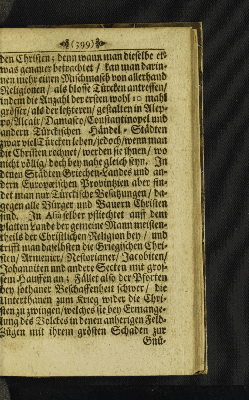 (399)
den Christen; denn wann man dieselbe et-
was genauer betrachtet / kan man darin-
nen mehr einen Mischmasch von allerhand
Religionen / als blosse Türcken antreffen /
indem die Anzahl der ersten wohl 10 mahl
grösser / als der letzteren / gestalten in Alep-
po / Alcair / Damasco / Constantinopel und
andern Türckischen Händel-Städten
zwar viel Türcken leben / jedoch / wenn man
die Christen rechnet / werden sie ihnen / wo
nicht völlig / doch bey nahe gleich seyn. In
denen Städten Griechen-Landes und an-
dern Europæischen Provintzien aber fin-
det man nur Türckische Besatzungen / da-
gegen alle Bürger und Bauern Christen
sind. In selber pflichtet auff dem
platten Lande der gemeine Mann meisten-
theils der Christlichen Religion bey / und
trifft man daselbsten die Griegischen Chri-
sten / Armenier / Nestorianer / Jacobiten /
Johanniten und andere Secten mit gros-
sem Hauffen an; Fället also der Pforten
bey sothaner Beschaffenheit schwer / die
Unterthanen zum Krieg wider die Chri-
sten zu zwingen / welches sie bey Ermange-
lung des Volckes in denen anherigen Feld-
Zügen mit ihrem grösten Schaden zur
Gnü-